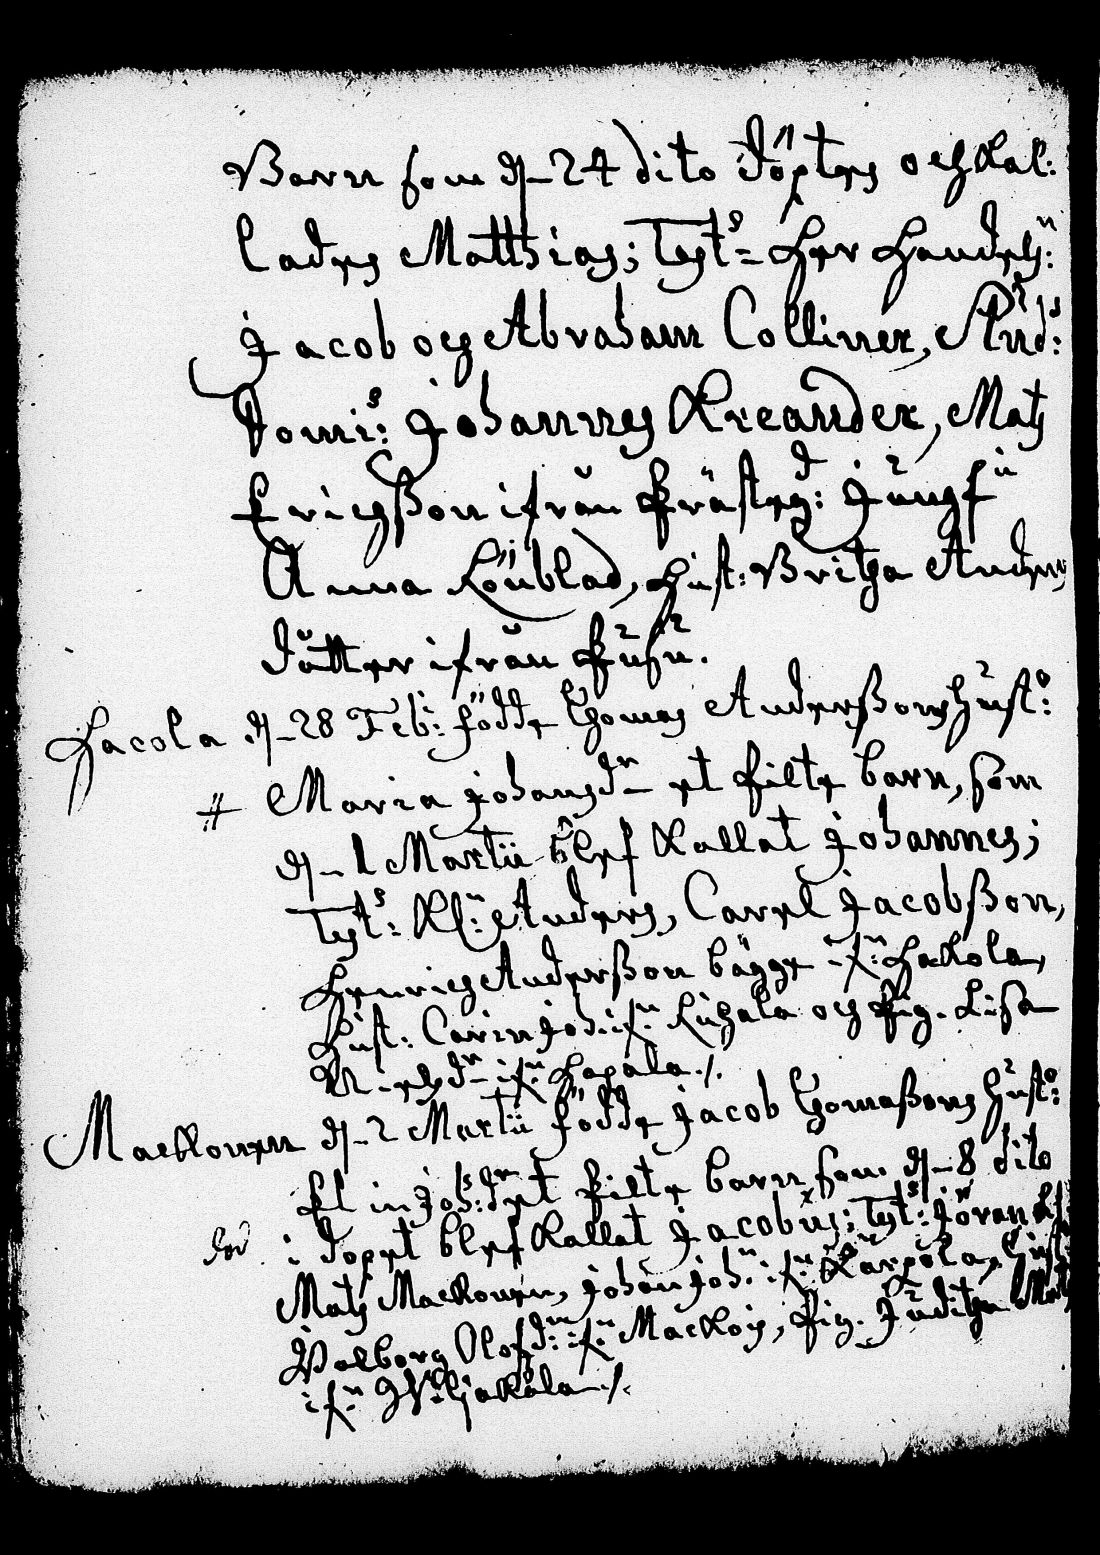 Barn som d. 24 dito döptes och kal:
lades Matthias; Tests: Her Handels:n
Jacob och Abraham Colliner, Stud:
Domi:s Johannes Kreander, Mats
Erichsson ifrån Prästeg:d Jungfu
Anna Lönblad, Hust: Britha Anders
dotter ifrån
Hacola d. 28 Feb: födde Thomas Anderssons Hust:o
Maria Johansd:r et Pilte barn, som
d. 1 Martii blef Kallat Johannes;
Test:s Kl:n Anders, Carel Jacobsson,
Henrich Andersson bägge if:n Hakola,
Hust: Carin Joh: if:n Liuhala och Pig. Lisa
if:n Hapala ./.
Mackonen d. 2 Martii födde Jacob Thomassons Hust:o
Elin Joh:s d:r et Pilte barn som d. 8 dito
död i dopet blef Kallat Jacobus; Test:s Jöran
Mats Mackonen, Johan Joh:n if:n Karpola, Hust:
Valborg Olofsd:r if:n Mackois, Pig. Juditha Mat
if:n Wiljakala ./.